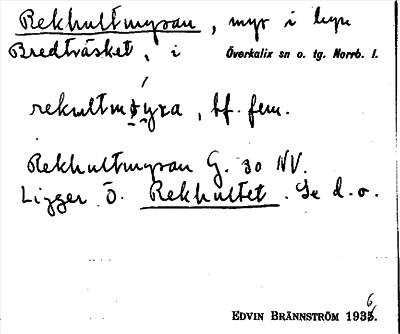 Rekhultmyran, myr i byn
Bredträsket, i Överkalix sn o. tg. Norrb. l.
rekultmyra, bf. fem.
Rekhultmyran G. 30 NV.
Ligger Ö. Rekhultet. Se d. o.
EDVIN BRÄNNSTRÖM 1936.